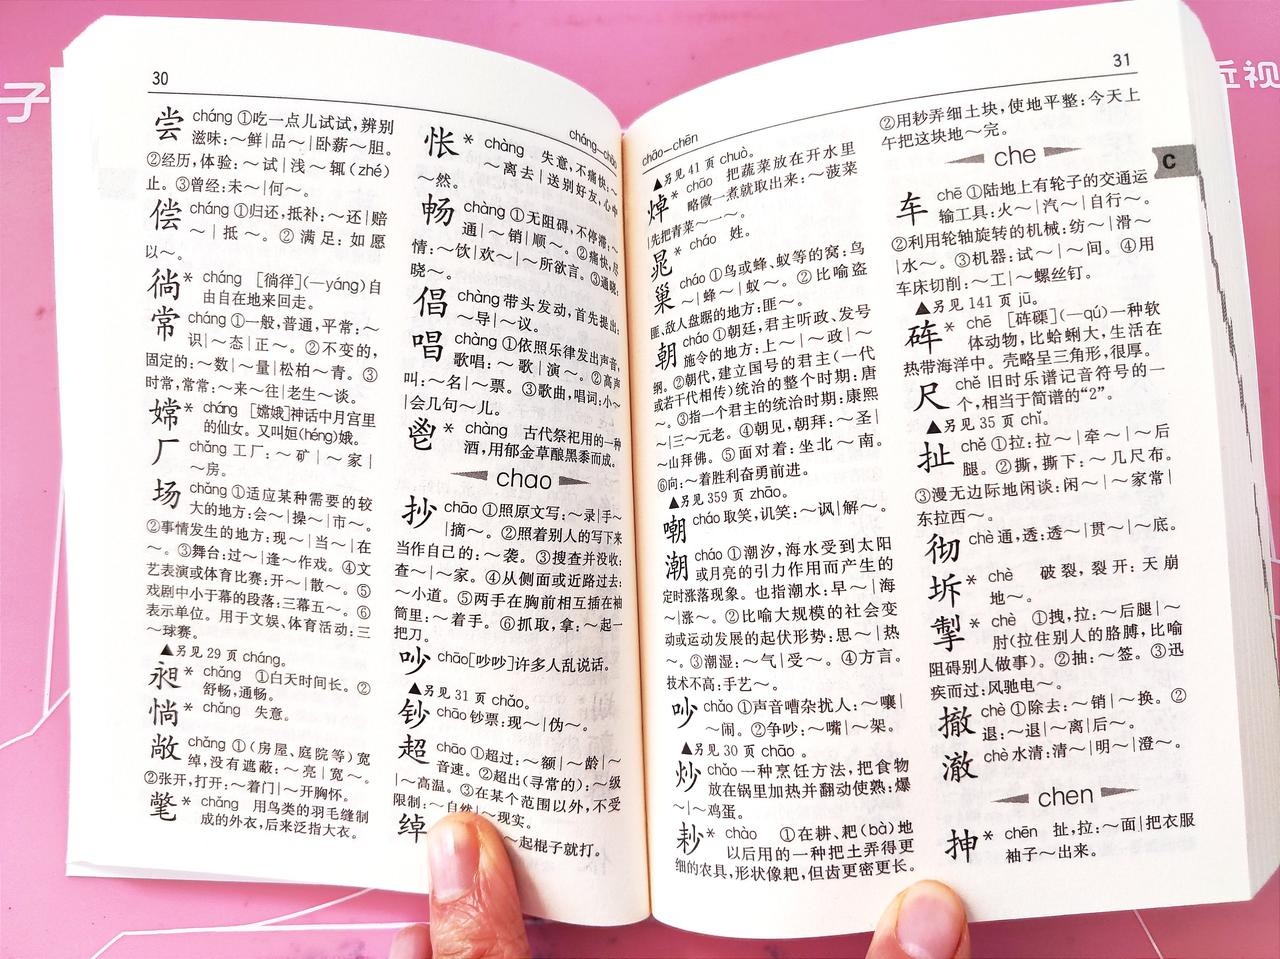 子
近视
30
cháng—chāo
尝 cháng ①吃一点儿试试，辨别
滋味：～鲜|品～|卧薪～胆。
②经历，体验：～试|浅～辄(zhé)
止。③曾经：未～|何～。
偿 cháng ①归还，抵补：～还|赔
～|抵～。②满足：如愿
以～。
徜* cháng [徜徉](—yáng)自
由自在地来回走。
常 cháng ①一般，普通，平常：～
识|～态|正～。②不变的，
固定的：～数|～量|松柏～青。③
时常，常常：～来～往|老生～谈。
嫦 cháng [嫦娥]神话中月宫里
的仙女。又叫姮(héng)娥。
厂 chǎng 工厂：～矿|～家|
～房。
场 chǎng ①适应某种需要的较
大的地方：会～|操～|市～。
②事情发生的地方：现～|当～|在
～。③舞台：过～|逢～作戏。④文
艺表演或体育比赛：开～|散～。⑤
戏剧中小于幕的段落：三幕五～。⑥
表示单位。用于文娱、体育活动：三
～球赛。
▲另见 29 页 cháng。
昶* chǎng ①白天时间长。②
舒畅，通畅。
惝* chǎng 失意。
敞 chǎng ①（房屋、庭院等）宽
绰，没有遮蔽：～亮|宽～。
②张开，打开：～着门|～开胸怀。
氅* chǎng 用鸟类的羽毛缝制
成的外衣，后来泛指大衣。
怅* chàng 失意，不痛快：～
～离去|送别好友，心中
～然。
畅 chàng ①无阻碍，不停滞：～
通|～销|顺～。②痛快，尽
情：～饮|欢～|～所欲言。③通晓：
晓～。
倡 chàng 带头发动，首先提出：
～导|～议。
唱 chàng ①依照乐律发出声音，
歌唱：～歌|演～。②高声
叫：～名|～票。③歌曲，唱词：小～
|会几句～儿。
鬯* chàng 古代祭祀用的一种
酒，用郁金草酿黑黍而成。
chao
抄 chāo ①照原文写：～录|手～
|摘～。②照着别人的写下来
当作自己的：～袭。③搜查并没收：
查～|～家。④从侧面或近路过去：
～小道。⑤两手在胸前相互插在袖
筒里：～着手。⑥抓取，拿：～起一
把刀。
吵 chāo[吵吵]许多人乱说话。
▲另见 31 页 chǎo。
钞 chāo 钞票：现～|伪～。
超 chāo ①超过：～额|～龄|～
音速。②超出（寻常的）：～级
|～高温。③在某个范围以外，不受
限制：～自然|～现实。
绰 ～起棍子就打。
31
chāo—chēn
C
▲另见 41 页 chuò。
焯* chāo 把蔬菜放在开水里
略微一煮就取出来：～菠菜
|先把青菜～一～。
晁* cháo 姓。
巢 cháo ①鸟或蜂、蚁等的窝：鸟
～|蜂～|蚁～。②比喻盗
匪、敌人盘踞的地方：匪～。
朝 cháo ①朝廷，君主听政、发号
施令的地方：上～|～政|～
纲。②朝代，建立国号的君主（一代
或若干代相传）统治的整个时期：唐
～。③指一个君主的统治时期：康熙
～|三～元老。④朝见，朝拜：～圣|
～山拜佛。⑤面对着：坐北～南。
⑥向：～着胜利奋勇前进。
▲另见 359 页 zhāo。
嘲 cháo 取笑，讥笑：～讽|解～。
潮 cháo ①潮汐，海水受到太阳
或月亮的引力作用而产生的
定时涨落现象。也指潮水：早～|海
～|涨～。②比喻大规模的社会变
动或运动发展的起伏形势：思～|热
～。③潮湿：～气|受～。④方言。
技术不高：手艺～。
吵 chǎo ①声音嘈杂扰人：～嚷|
～闹。②争吵：～嘴|～架。
▲另见 30 页 chāo。
炒 chǎo 一种烹饪方法，把食物
放在锅里加热并翻动使熟：爆
～|～鸡蛋。
耖* chào ①在耕、耙(bà)地
以后用的一种把土弄得更
细的农具，形状像耙，但齿更密更长。
②用耖弄细土块，使地平整：今天上
午把这块地～完。
che
车 chē ①陆地上有轮子的交通运
输工具：火～|汽～|自行～。
②利用轮轴旋转的机械：纺～|滑～
|水～。③机器：试～|～间。④用
车床切削：～工|～螺丝钉。
▲另见 141 页 jū。
砗* chē [砗磲](—qú)一种软
体动物，比蛤蜊大，生活在
热带海洋中。壳略呈三角形，很厚。
尺 chě 旧时乐谱记音符号的一
个，相当于简谱的“2”。
▲另见 35 页 chǐ。
扯 chě ①拉：拉～|牵～|～后
腿。②撕，撕下：～几尺布。
③漫无边际地闲谈：闲～|～家常|
东拉西～。
彻 chè 通，透：透～|贯～|～底。
坼* chè 破裂，裂开：天崩
地～。
掣* chè ①拽，拉：～后腿|～
肘（拉住别人的胳膊，比喻
阻碍别人做事）。②抽：～签。③迅
疾而过：风驰电～。
撤 chè ①除去：～销|～换。②
退：～退|～离|后～。
澈 chè 水清：清～|明～|澄～。
chen
抻* chēn 扯，拉：～面|把衣服
袖子～出来。